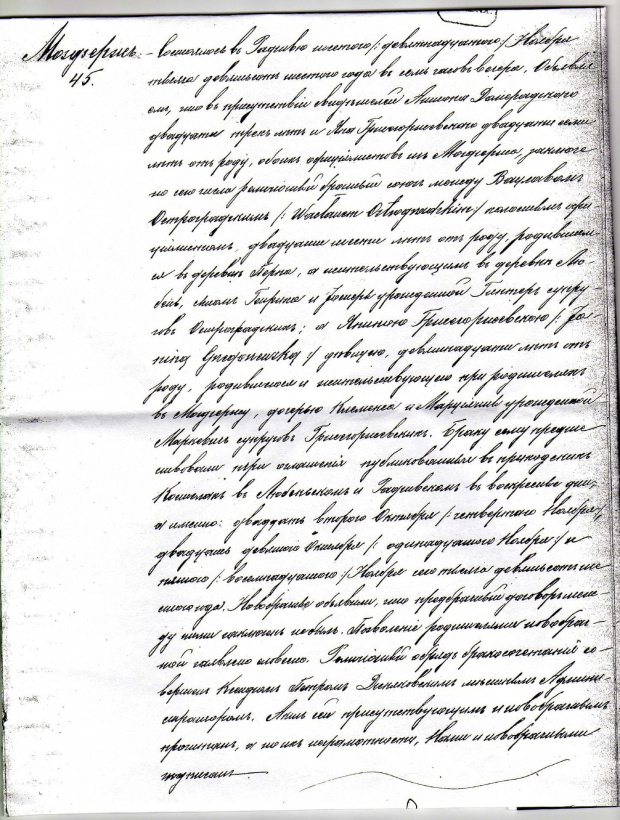 Мохерекъ
45.
— Состоялось въ Радзивью шестого /: девятнадцатаго :/ Ноября
тысяча девятьсотъ шестого года въ семь часовъ вечера. Объявля
емъ, что въ присутствіи свидѣтелей Антона Домерадскаго
двадцати трехъ лѣтъ и Яна Григоріевскаго двадцати семи
лѣтъ отъ роду, обоихъ оффиціялистовъ изъ заключе
но сего числа религіозный брачный союзъ между Вацлавомъ
Остроградскимъ /: Wacławem Ostrogradzkim :/ холостымъ офи
ціялистомъ, двадцати шести лѣтъ отъ роду, родившим
ся въ деревнѣ а жительствующимъ въ деревнѣ Лю
сыномъ Генриха и урожденной Гинтеръ супру
говъ Остроградскихъ; а Яниною Григоріевскою /: Ja
niną :/ дѣвицею, девятнадцати лѣтъ отъ
роду, родившеюся и жительствующею при родителяхъ
въ дочерью Клеменса и Маріянны урожденной
Марковичъ супруговъ Григоріевскихъ. Браку сему предше
ствовали три оглашенія публикованныя въ приходскихъ
Костелахъ въ Любеньскомъ и Радзивскомъ въ воскресные дни,
а именно: двадцать второго Октября /: четвертаго Ноября :/,
двадцать девятаго Октября /: одинадцатаго Ноября :/ и
пятаго /: восемнадцатаго :/ Ноября сего тысяча девятьсотъ ше
стого года. Новобрачные объявили, что предбрачный договоръ меж
ду ними заключенъ не былъ. Позволеніе родителями новобрач
ной заявлено словесно. Религіозный обрядъ бракосочетанія со
вершенъ Ксендзомъ Петромъ мѣстнымъ Админи
страторомъ. Актъ сей присутствующимъ и новобрачнымъ
прочитанъ, а по ихъ неграмотности, Нами и новобрачными
подписанъ